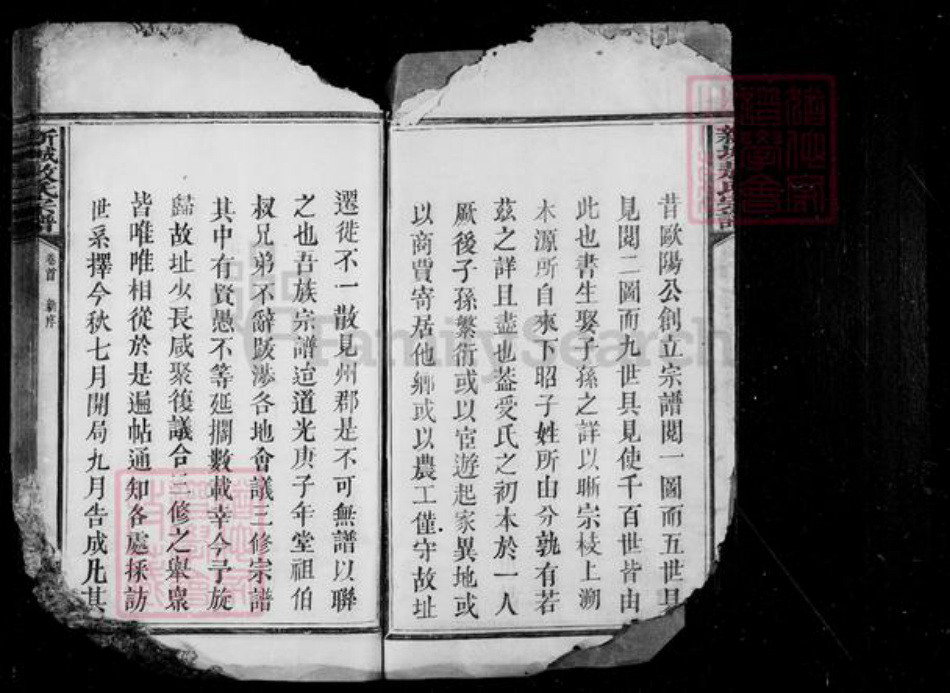 昔歐陽公創立宗譜閱一圖而五世具
見閱二圖而九世具見使千百世皆由
此也書生娶子孫之詳以晰宗枝上溯
木源所自來下昭子姓所由分孰有若
茲之詳且盡也葢受氏之初本於一人
厥後子孫繁衍或以宦遊起家異地或
以商賈寄居他鄉或以農工僅守故址
遷徙不一散見州郡是不可無譜以聯
之也吾族宗譜迨道光庚子年堂祖伯
叔兄弟不辭跋涉各地會議三修宗譜
其中有賢愚不等延擱數載幸今予旋
歸故址少長咸聚復議合三修之舉衆
皆唯唯相從於是遍帖通知各處採訪
世系擇今秋七月開局九月告成凡其
卷首 新序
FamilySearch